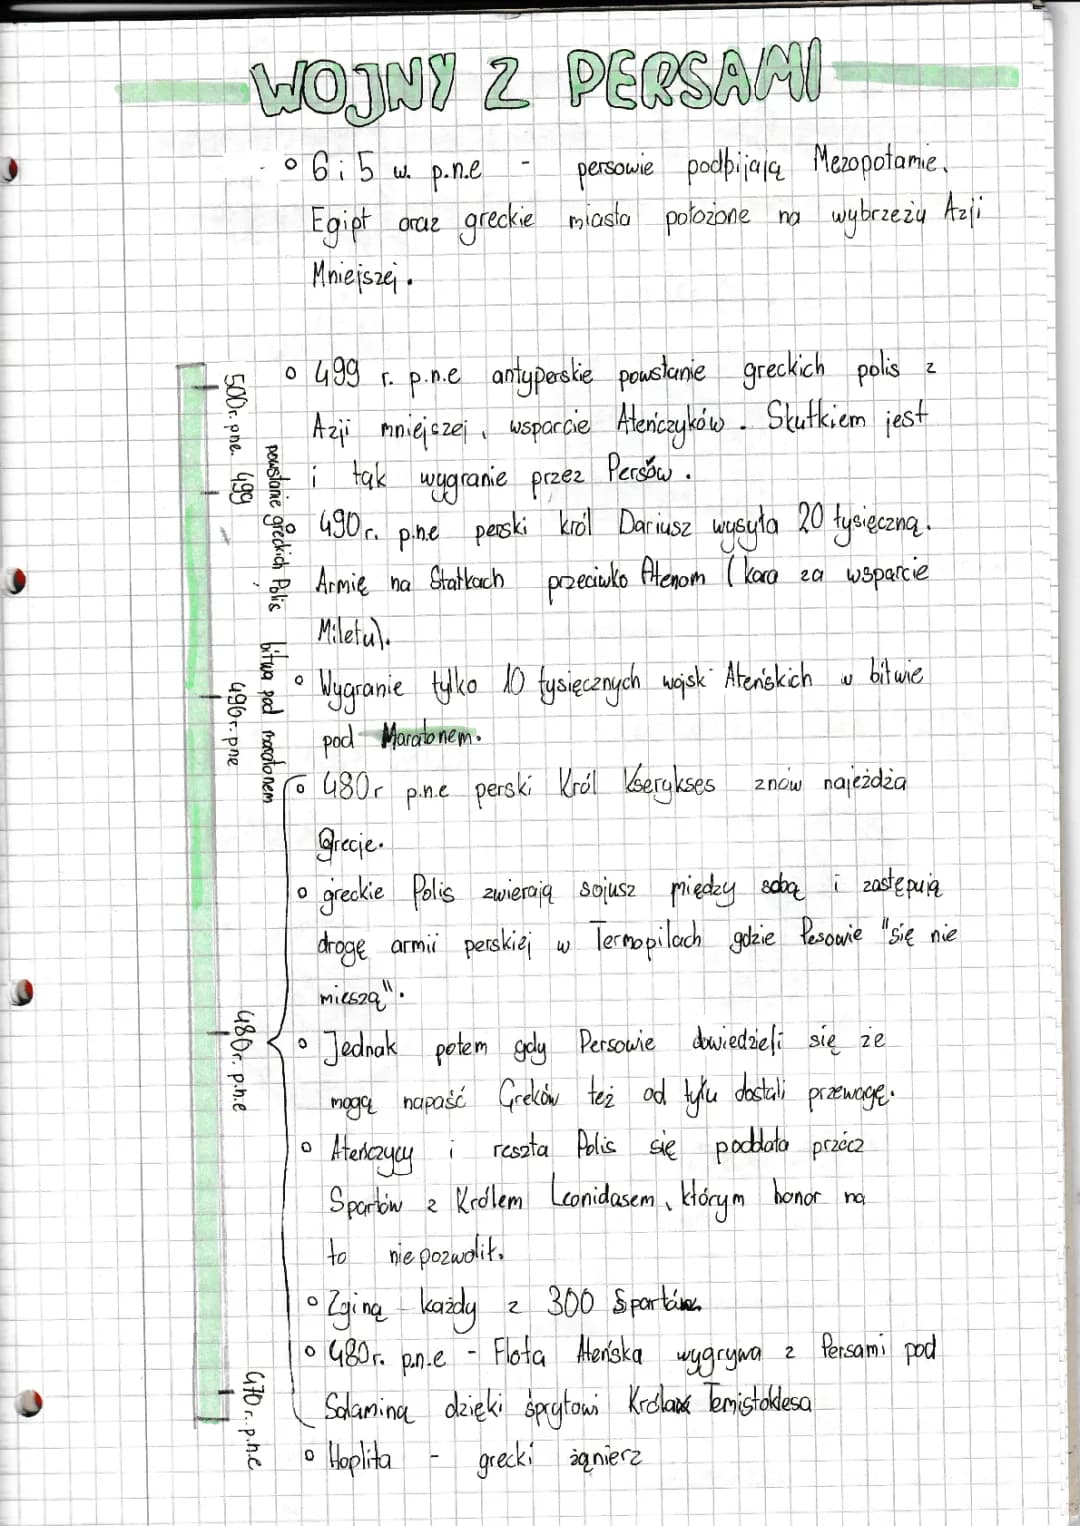 WOJNY Z PERSAMI
° 6 i 5 w. p.n.e - persowie podbijają Mezopotamie,
Egipt oraz greckie miasta położone na wybrzeżu Azji
Mniejszej.
° 499 r. p.n.e antyperskie powstanie greckich polis z
Azji mniejszej, wsparcie Ateńczyków. Skutkiem jest
i tak wygranie przez Persów.
° 490 r. p.n.e perski król Dariusz wysyła 20 tysięczną.
Armię na Statkach przeciwko Atenom (kara za wsparcie
Miletu).
° Wygranie tylko 10 tysięcznych wojsk Ateńskich w bitwie
pod Maratonem.
° 480r p.n.e perski Król Kserykses znów najeżdża
Grecje.
° greckie Polis zwierają sojusz między sobą i zastępują
drogę armii perskiej w Termopilach gdzie Pesowie "się nie
mieszą".
° Jednak potem gdy Persowie dowiedzieli się że
mogą napaść Greków też od tyłu dostali przewagę.
° Ateńczycy i reszta Polis się poddała przécz
Spartów z Królem Leonidasem, którym honor na
to nie pozwolił.
° Zginą każdy z 300 Spartan
° 480r. p.n.e - Flota Ateńska wygrywa z Persami pod
Salaminą dzięki sprytowi Króla Temistoklesa
° Hoplita - grecki żąnierz
500r. pne. 499
powstanie greckich Polis
490 r. pne
bitwa pod maratonem
480r. p.n.e
470 r. p.n.e